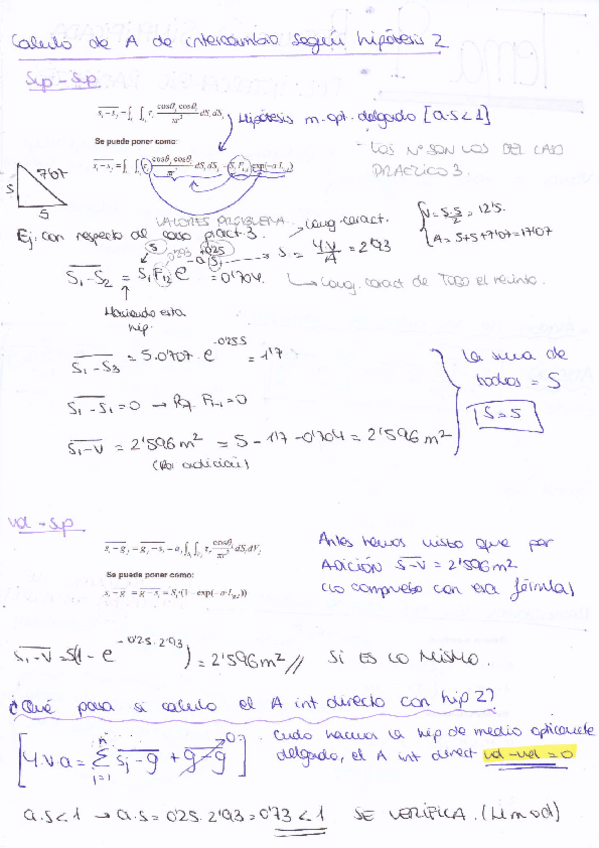 Calculo de A de intercambio según hipótesis 2
Sup - Sup
s_i - s_j = ∫ ∫ τ_r cosθ_i cosθ_j / πr² dS_i dS_j
Hipótesis m. opt. delgado [a.s<1]
Se puede poner como:
- LOS Nº SON LOS DEL CASO
PRACTICO 3.
5
7'07
5
VALORES PROBLEMA
Ej: con respecto al caso pract. 3.
Long. caract.
V = 5·5/2 = 12'5
A = 5+5+7'07 = 17'07
S = 4V/A = 2'93
5
0'293
0'25
S1-S2 = S1 F12 e^-a S = 0'704
Long. caract de TODO el recinto.
Haciendo esta
hip.
S1-S3 = 5·0'707·e^-0'25·5 = 1'7
S1-S1 = 0 → F1-1 = 0
S1-V = 2'596 m² = 5 - 1'7 - 0'704 = 2'596 m²
(Por adición)
La suma de
todos = S
S=5
Vol - Sup
s_i - g_j = g_j - s_i = a_j ∫ ∫ τ_r cosθ_i / πr² dS_i dV_j
Se puede poner como:
s_i - g = g - s_i = S_i·(1 - exp(-a·L))
Antes hemos visto que por
ADICIÓN S-V = 2'596 m²
(lo compruebo con esa fórmula)
S1-V = S(1 - e^-0'25·2'93) = 2'596 m² // SI ES LO MISMO.
¿Qué pasa si calculo el A int directo con hip 2?
[4·V·a = Σ i=1 n s_j-g + g-g] 0
Cuando hacemos la hip de medio opticamente
delgado, el A int direct vol-vol = 0
a.s<1 → a.s = 0'25·2'93 = 0'73 < 1 SE VERIFICA.